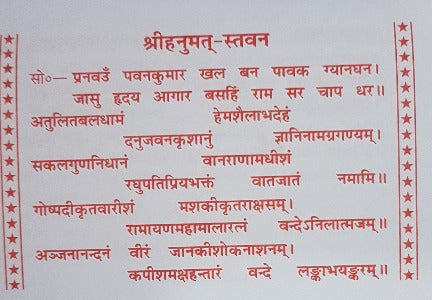 श्रीहनुमत्-स्तवन
सो०— प्रनवउँ पवनकुमार खल बन पावक ग्यानघन।
जासु हृदय आगार बसहिं राम सर चाप धर॥
अतुलितबलधामं हेमशैलाभदेहं
दनुजवनकृशानुं ज्ञानिनामग्रगण्यम्।
सकलगुणनिधानं वानराणामधीशं
रघुपतिप्रियभक्तं वातजातं नमामि॥
गोष्पदीकृतवारीशं मशकीकृतराक्षसम्।
रामायणमहामालारत्नं वन्देऽनिलात्मजम्॥
अञ्जनानन्दनं वीरं जानकीशोकनाशनम्।
कपीशमक्षहन्तारं वन्दे लङ्काभयङ्करम्॥